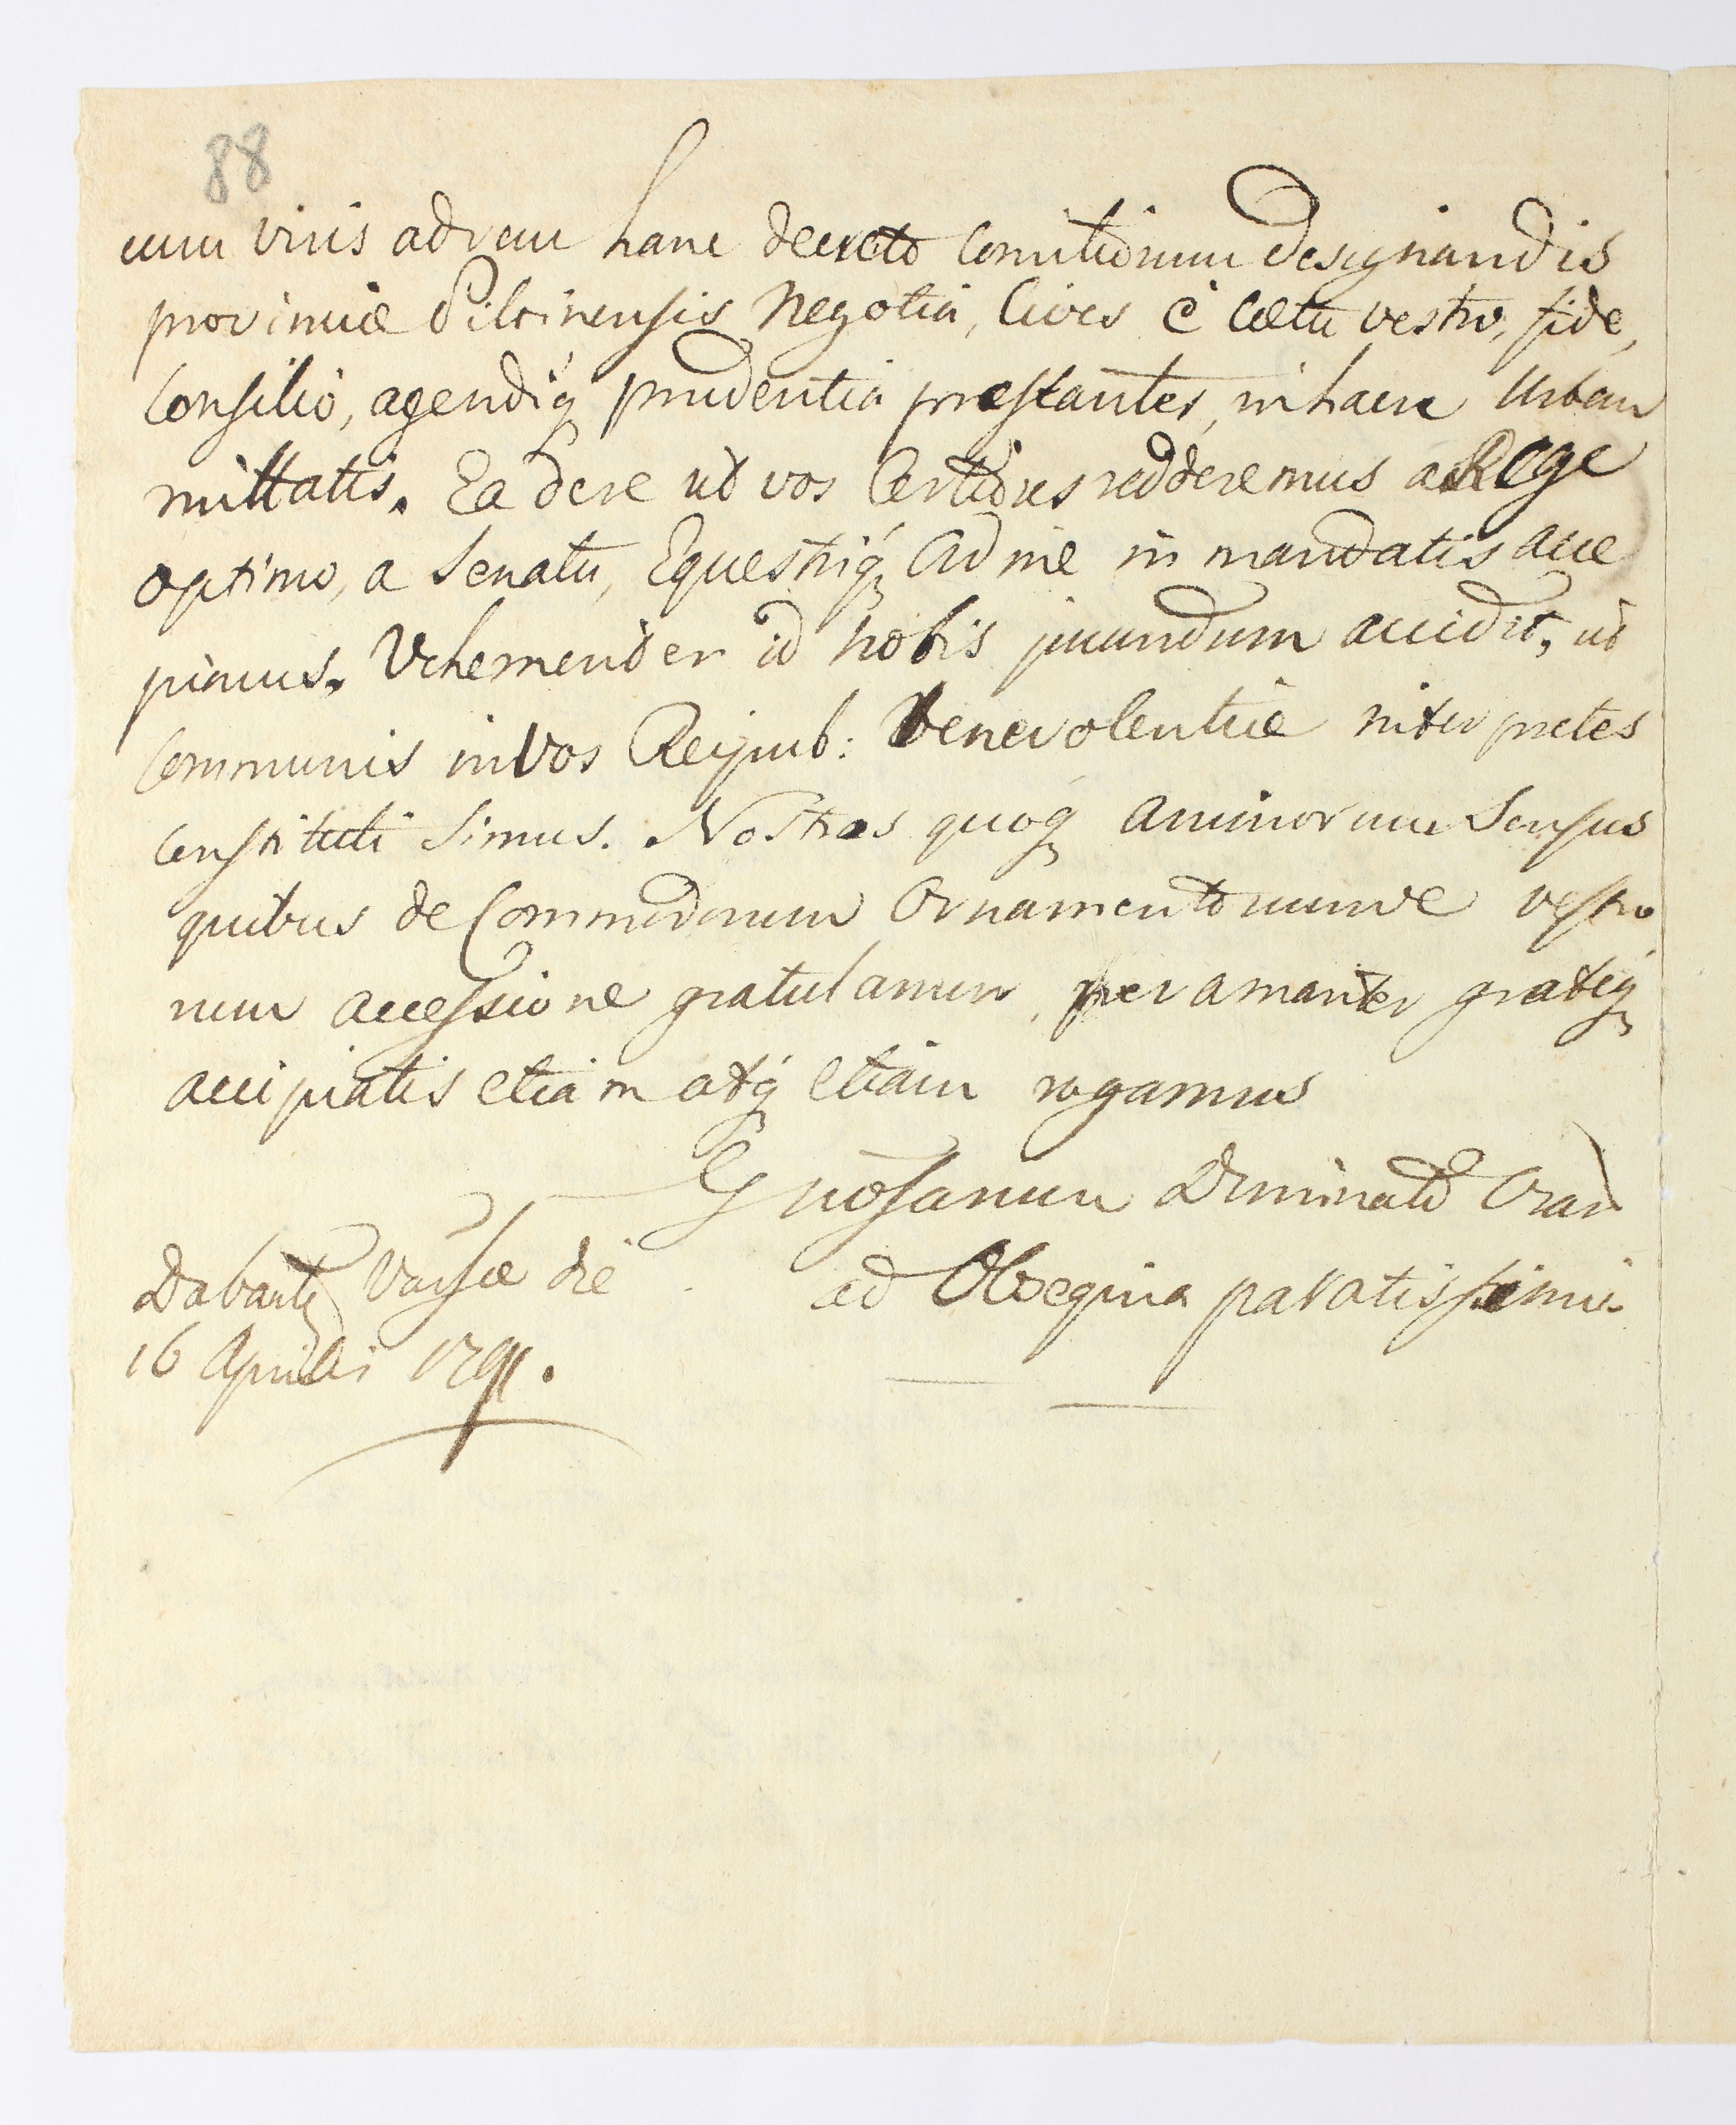 88
cum viris ad rem hanc decreto Comitiorum designandis
provinciæ Pilcinensis Negotia, Cives è Cœtu vestro, fide,
Consilio, agendiq prudentia præstantes, in hanc Urbem
mittatis. Ea de re ut vos Certiores redderemus a Rege
optimo, a Senatu, Equestriq Ordine in mandatis acce
pimus. Vehementer id nobis jucundum accidit, ut
Communis in vos Reipub: benevolentiæ interpretes
constituti simus. Nostros quoq animorum Sensus
quibus de Commodorum Ornamentorumve vestro
rum accessione gratulamur, peramanter grateq
accipiatis etiam atq etiam rogamus
Dominato
Dabant Varsæ die ad Obsequia paratissimi
16 Aprilis 1791.